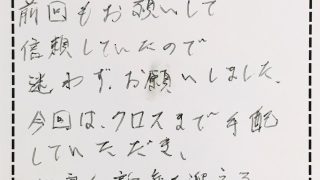 前回もお願いして
信頼していたので
迷わず、お願いしました。
今回は、クロスまで手配
していただき、